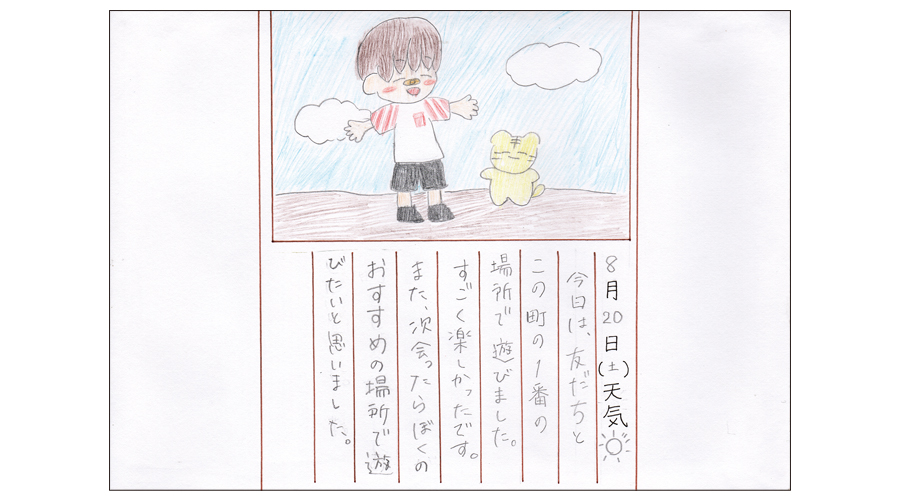 8月20日(土)天気☀
今日は、友だちと
この町の1番の
場所で遊びました。
すごく楽しかったです。
また、次会ったらぼくの
おすすめの場所で遊
びたいと思いました。